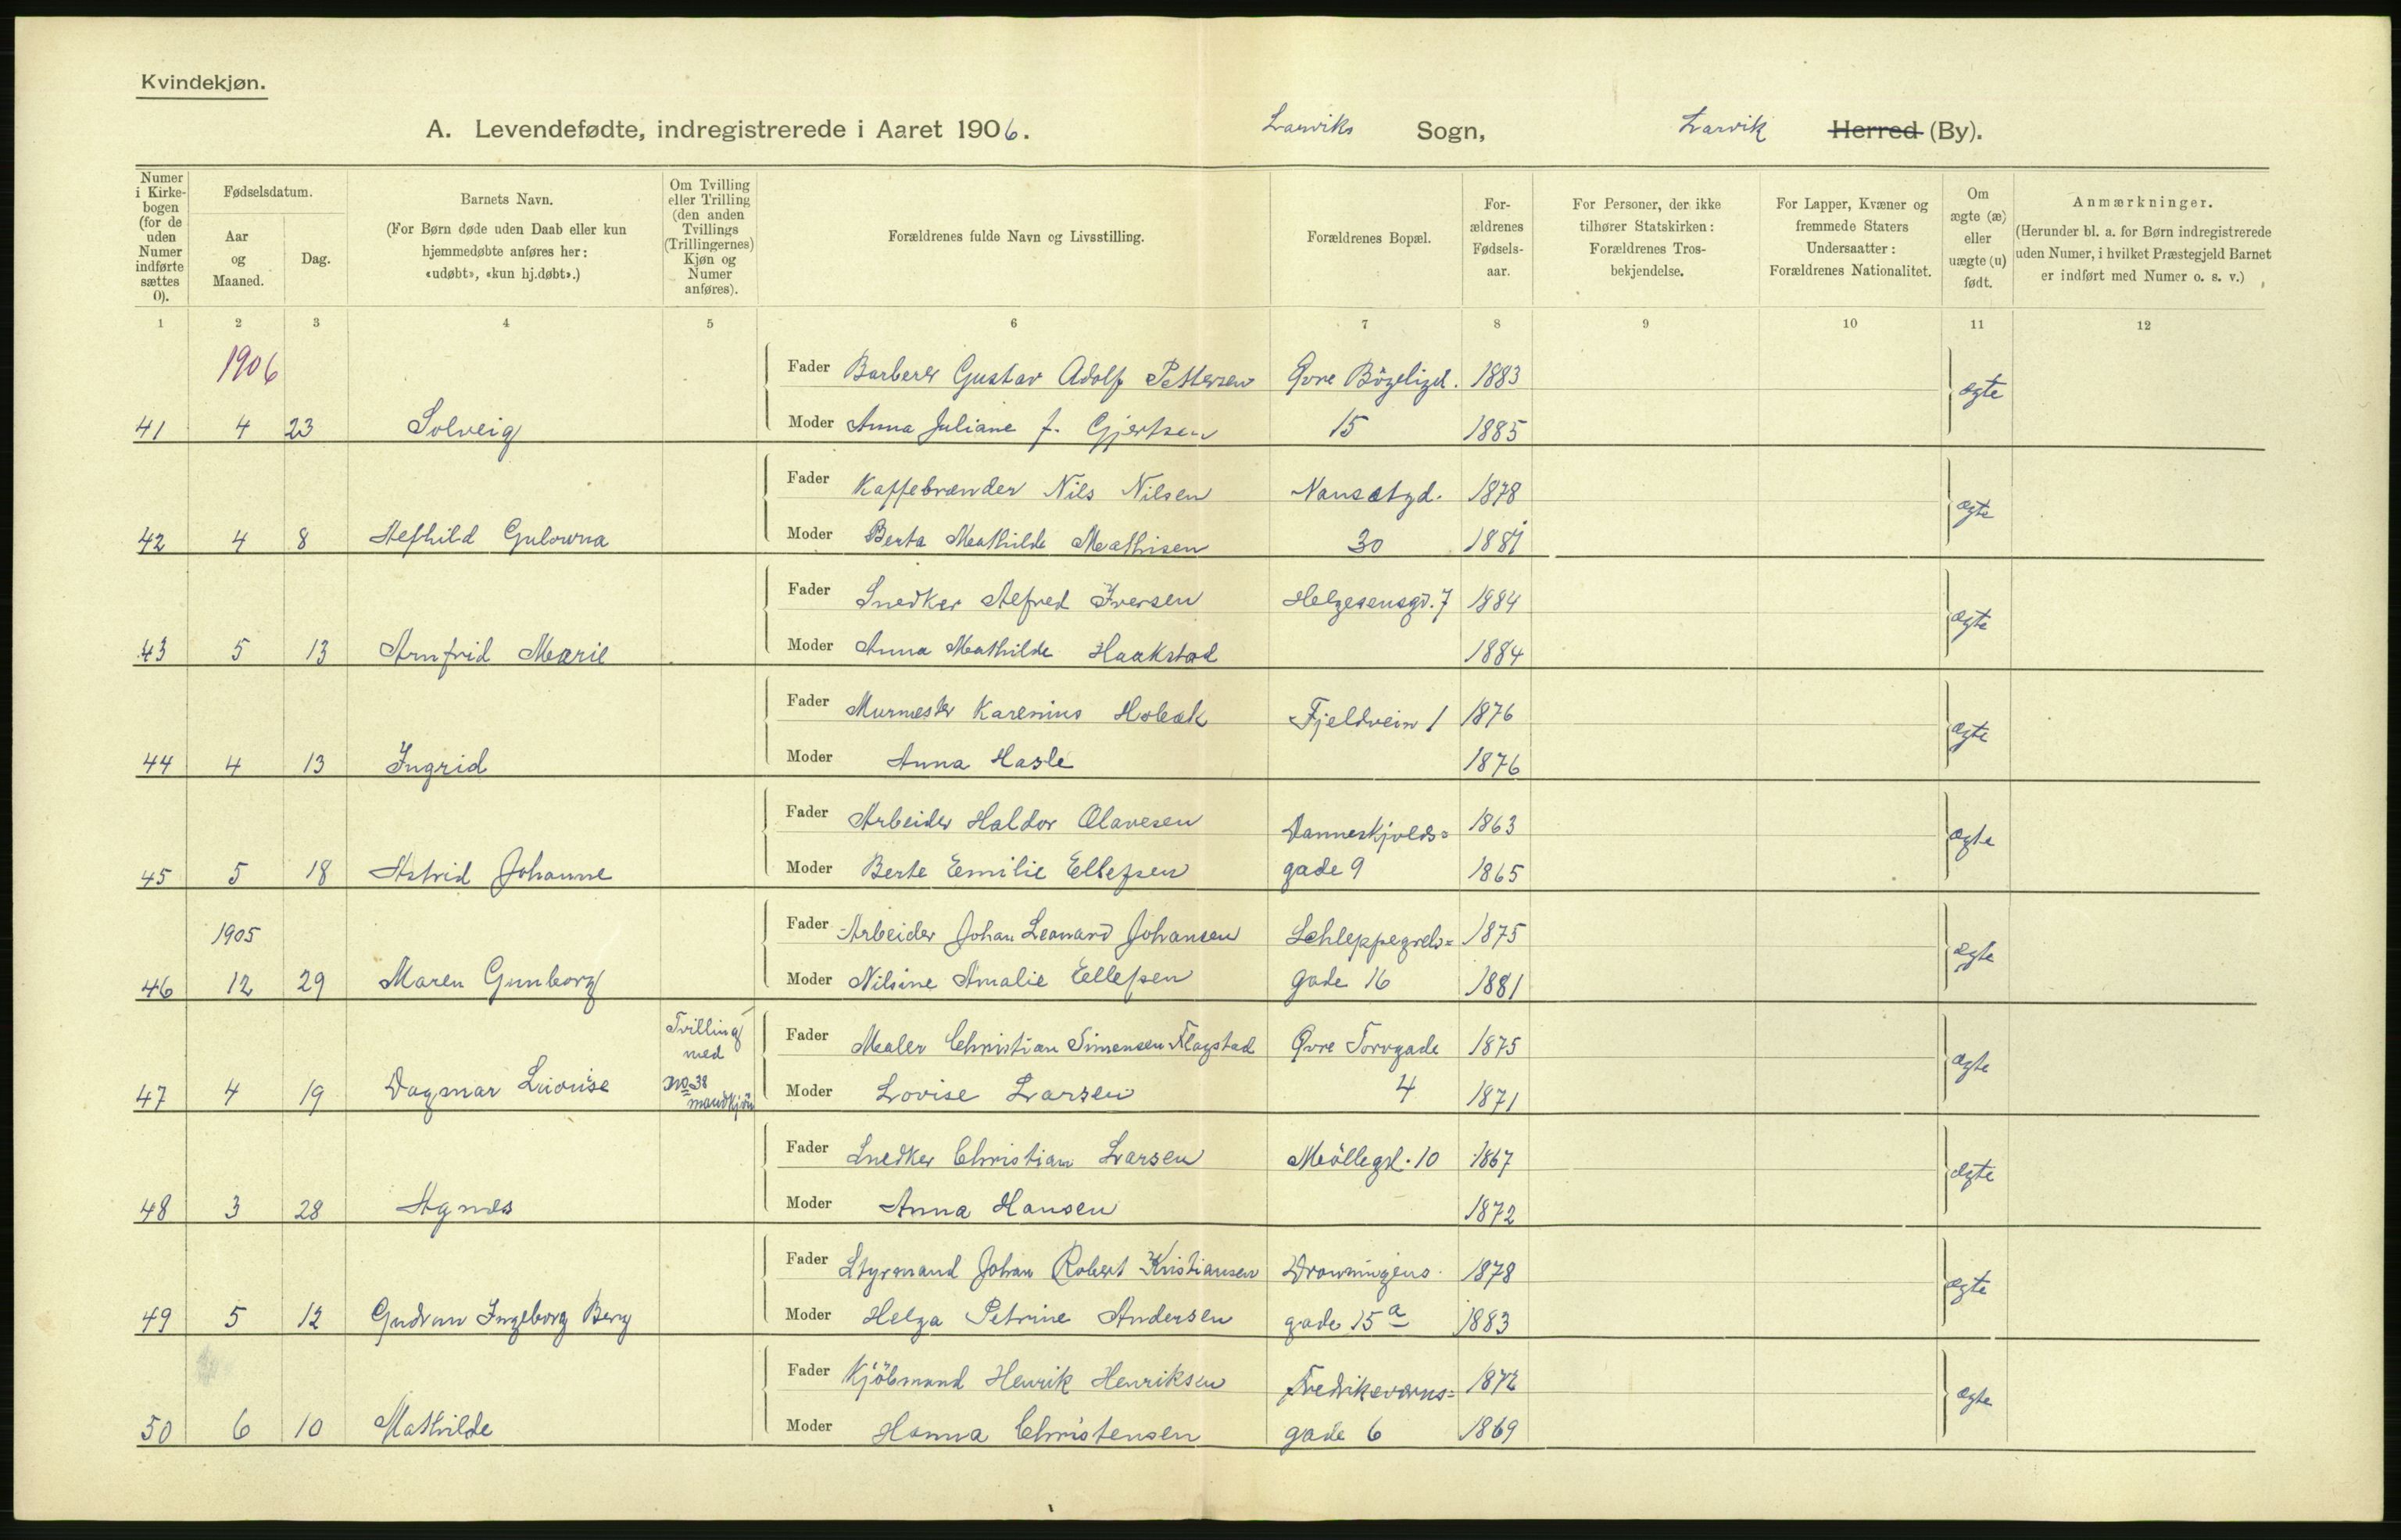 Kvindekjøn.
A. Levendefødte, indregistrerede i Aaret 1906. Larviks Sogn, Larvik Herred (By).
Numer i Kirkebogen (for de uden Numer indførte sættes 0).
Fødselsdatum.
Aar og Maaned.
Dag.
Barnets Navn.
(For Børn døde uden Daab eller kun hjemmedøbte anføres her: «udøbt», «kun hj.døbt».)
Om Tvilling eller Trilling (den anden Tvillings (Trillingernes) Kjøn og Numer anføres).
Forældrenes fulde Navn og Livsstilling.
Forældrenes Bopæl.
Forældrenes Fødselsaar.
For Personer, der ikke tilhører Statskirken: Forældrenes Trosbekjendelse.
For Lapper, Kvæner og fremmede Staters Undersaatter: Forældrenes Nationalitet.
Om ægte (æ) eller uægte (u) født.
Anmærkninger.
(Herunder bl. a. for Børn indregistrerede uden Numer, i hvilket Præstegjeld Barnet er indført med Numer o. s. v.)
1 2 3 4 5 6 7 8 9 10 11 12
1906
Fader Barberer Gustav Adolf Pettersen Øvre Bögeligd. 1883 ægte
41 4 23 Solveig Moder Anna Juliane f. Gjertsen 15 1885
Fader Kaffebrænder Nils Nilsen Nansetgd. 1878 ægte
42 4 8 Alfhild Moder Berta Mathilde Mathisen 30 1881
Fader Snedker Alfred Iversen Helgesensgd. 7 1884 ægte
43 5 13 Arnfrid Marie Moder Anna Mathilde Haakstad 1884
Fader Murmester Karenius Holbæk Fjeldvein 1 1876 ægte
44 4 13 Ingrid Moder Anna Hasle 1876
Fader Arbeider Haldor Olavesen Danneskjolds= 1863 ægte
45 5 18 Astrid Johanne Moder Berte Emilie Ellefsen gade 9 1865
1905
Fader Arbeider Johan Leonard Johansen Schleppegrels= 1875 ægte
46 12 29 Maren Gunborg Moder Nilsine Amalie Ellefsen gade 16 1881
Tvilling med
Fader Maler Christian Simensen Flagstad Øvre Torvgade 1875 ægte
47 4 19 Dagmar Louise no 38 mandkjön Moder Lovise Larsen 4 1871
Fader Snedker Christian Larsen Möllegd. 10 1867 ægte
48 3 28 Agnes Moder Anna Hansen 1872
Fader Styrmand Johan Robert Kristiansen Dronningens 1878 ægte
49 5 12 Gudrun Ingeborg Berg Moder Helga Petrine Andersen gade 15 a 1883
Fader Kjöbmand Henrik Henriksen Fredriksværns= 1872 ægte
50 6 10 Mathilde Moder Hanna Christensen gade 6 1869